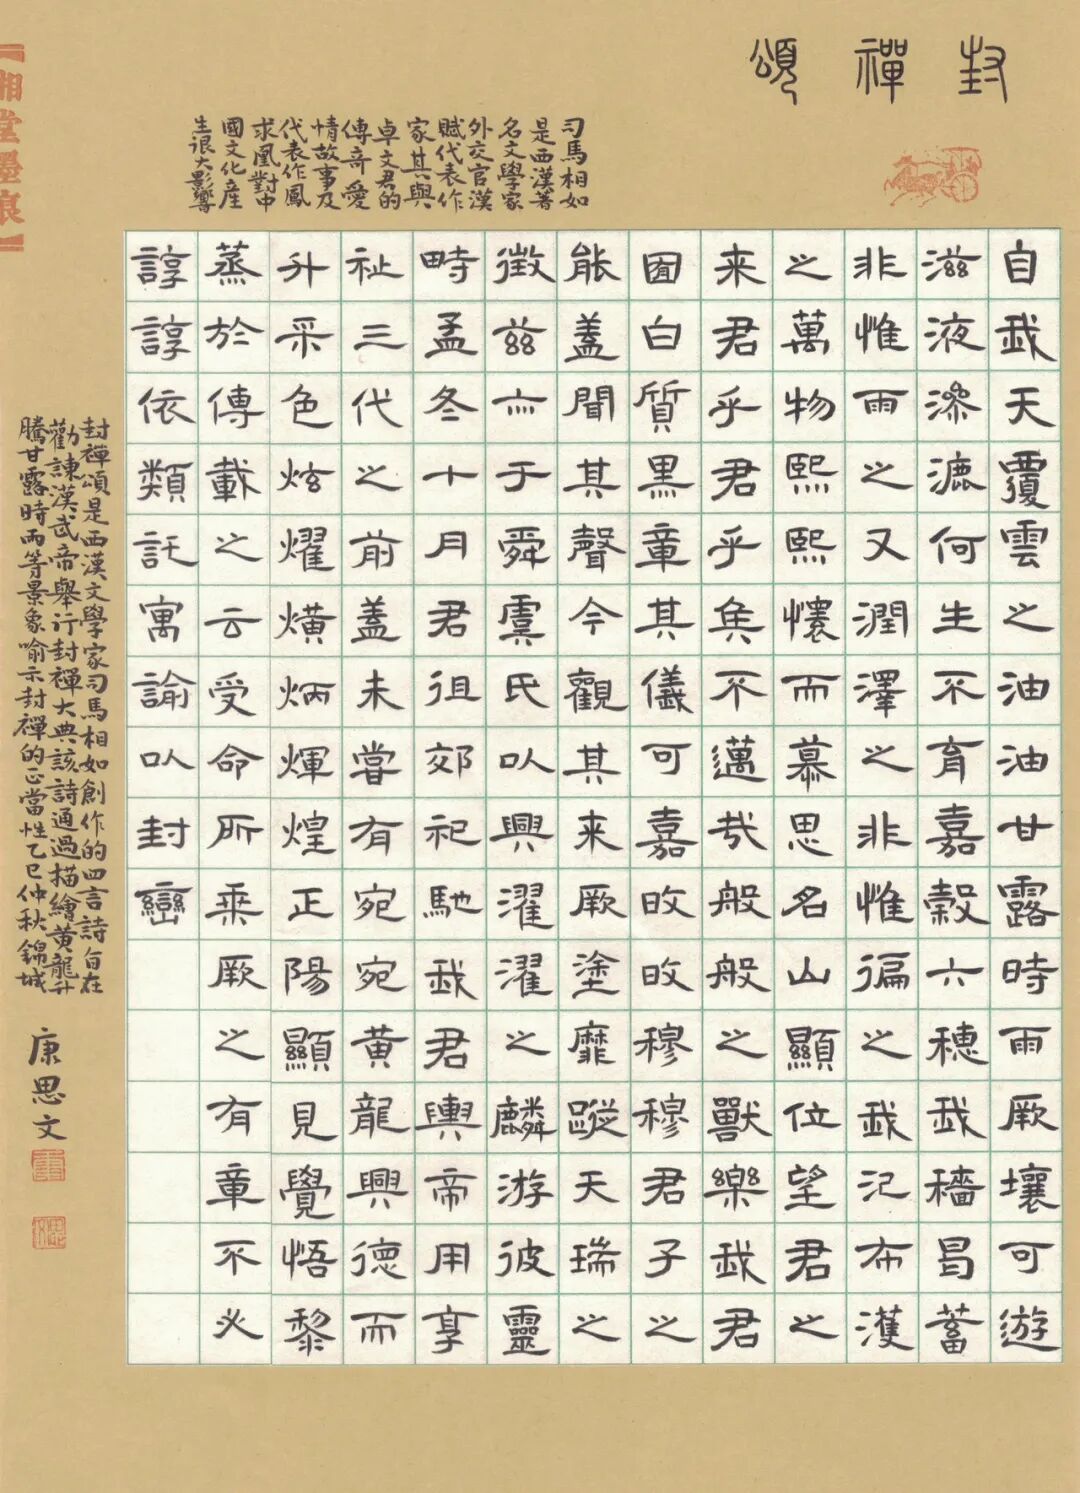 封禪頌
司馬相如
是西漢著
名文學家
外交官漢
賦代表作
家其與
卓文君的
傳奇愛
情故事及
代表作鳳
求凰對中
國文化産
生很大影響
自我天覆雲之油油甘露時雨厥壤可遊
滋液滲漉何生不育嘉穀六穗我穡曷蓄
非惟雨之又潤澤之非惟徧之我氾布濩
之萬物熙熙懷而慕思名山顯位望君之
来君乎君乎矦不邁哉般般之獸樂我君
囿白質黑章其儀可嘉旼旼穆穆君子之
能蓋聞其聲今觀其来厥塗靡蹤天瑞之
徵茲亦于舜虞氏以興濯濯之麟游彼靈
畤孟冬十月君徂郊祀馳我君輿帝用享
祉三代之前蓋未嘗有宛宛黃龍興德而
升采色炫燿熿炳煇煌正陽顯見覺悟黎
蒸於傳載之云受命所乘厥之有章不必
諄諄依類託寓諭以封巒
封禪頌是西漢文學家司馬相如創作的四言詩旨在
勸諫漢武帝舉行封禪大典該詩通過描繪黃龍升
騰甘露時雨等景象喻示封禪的正當性乙巳仲秋錦城
康思文